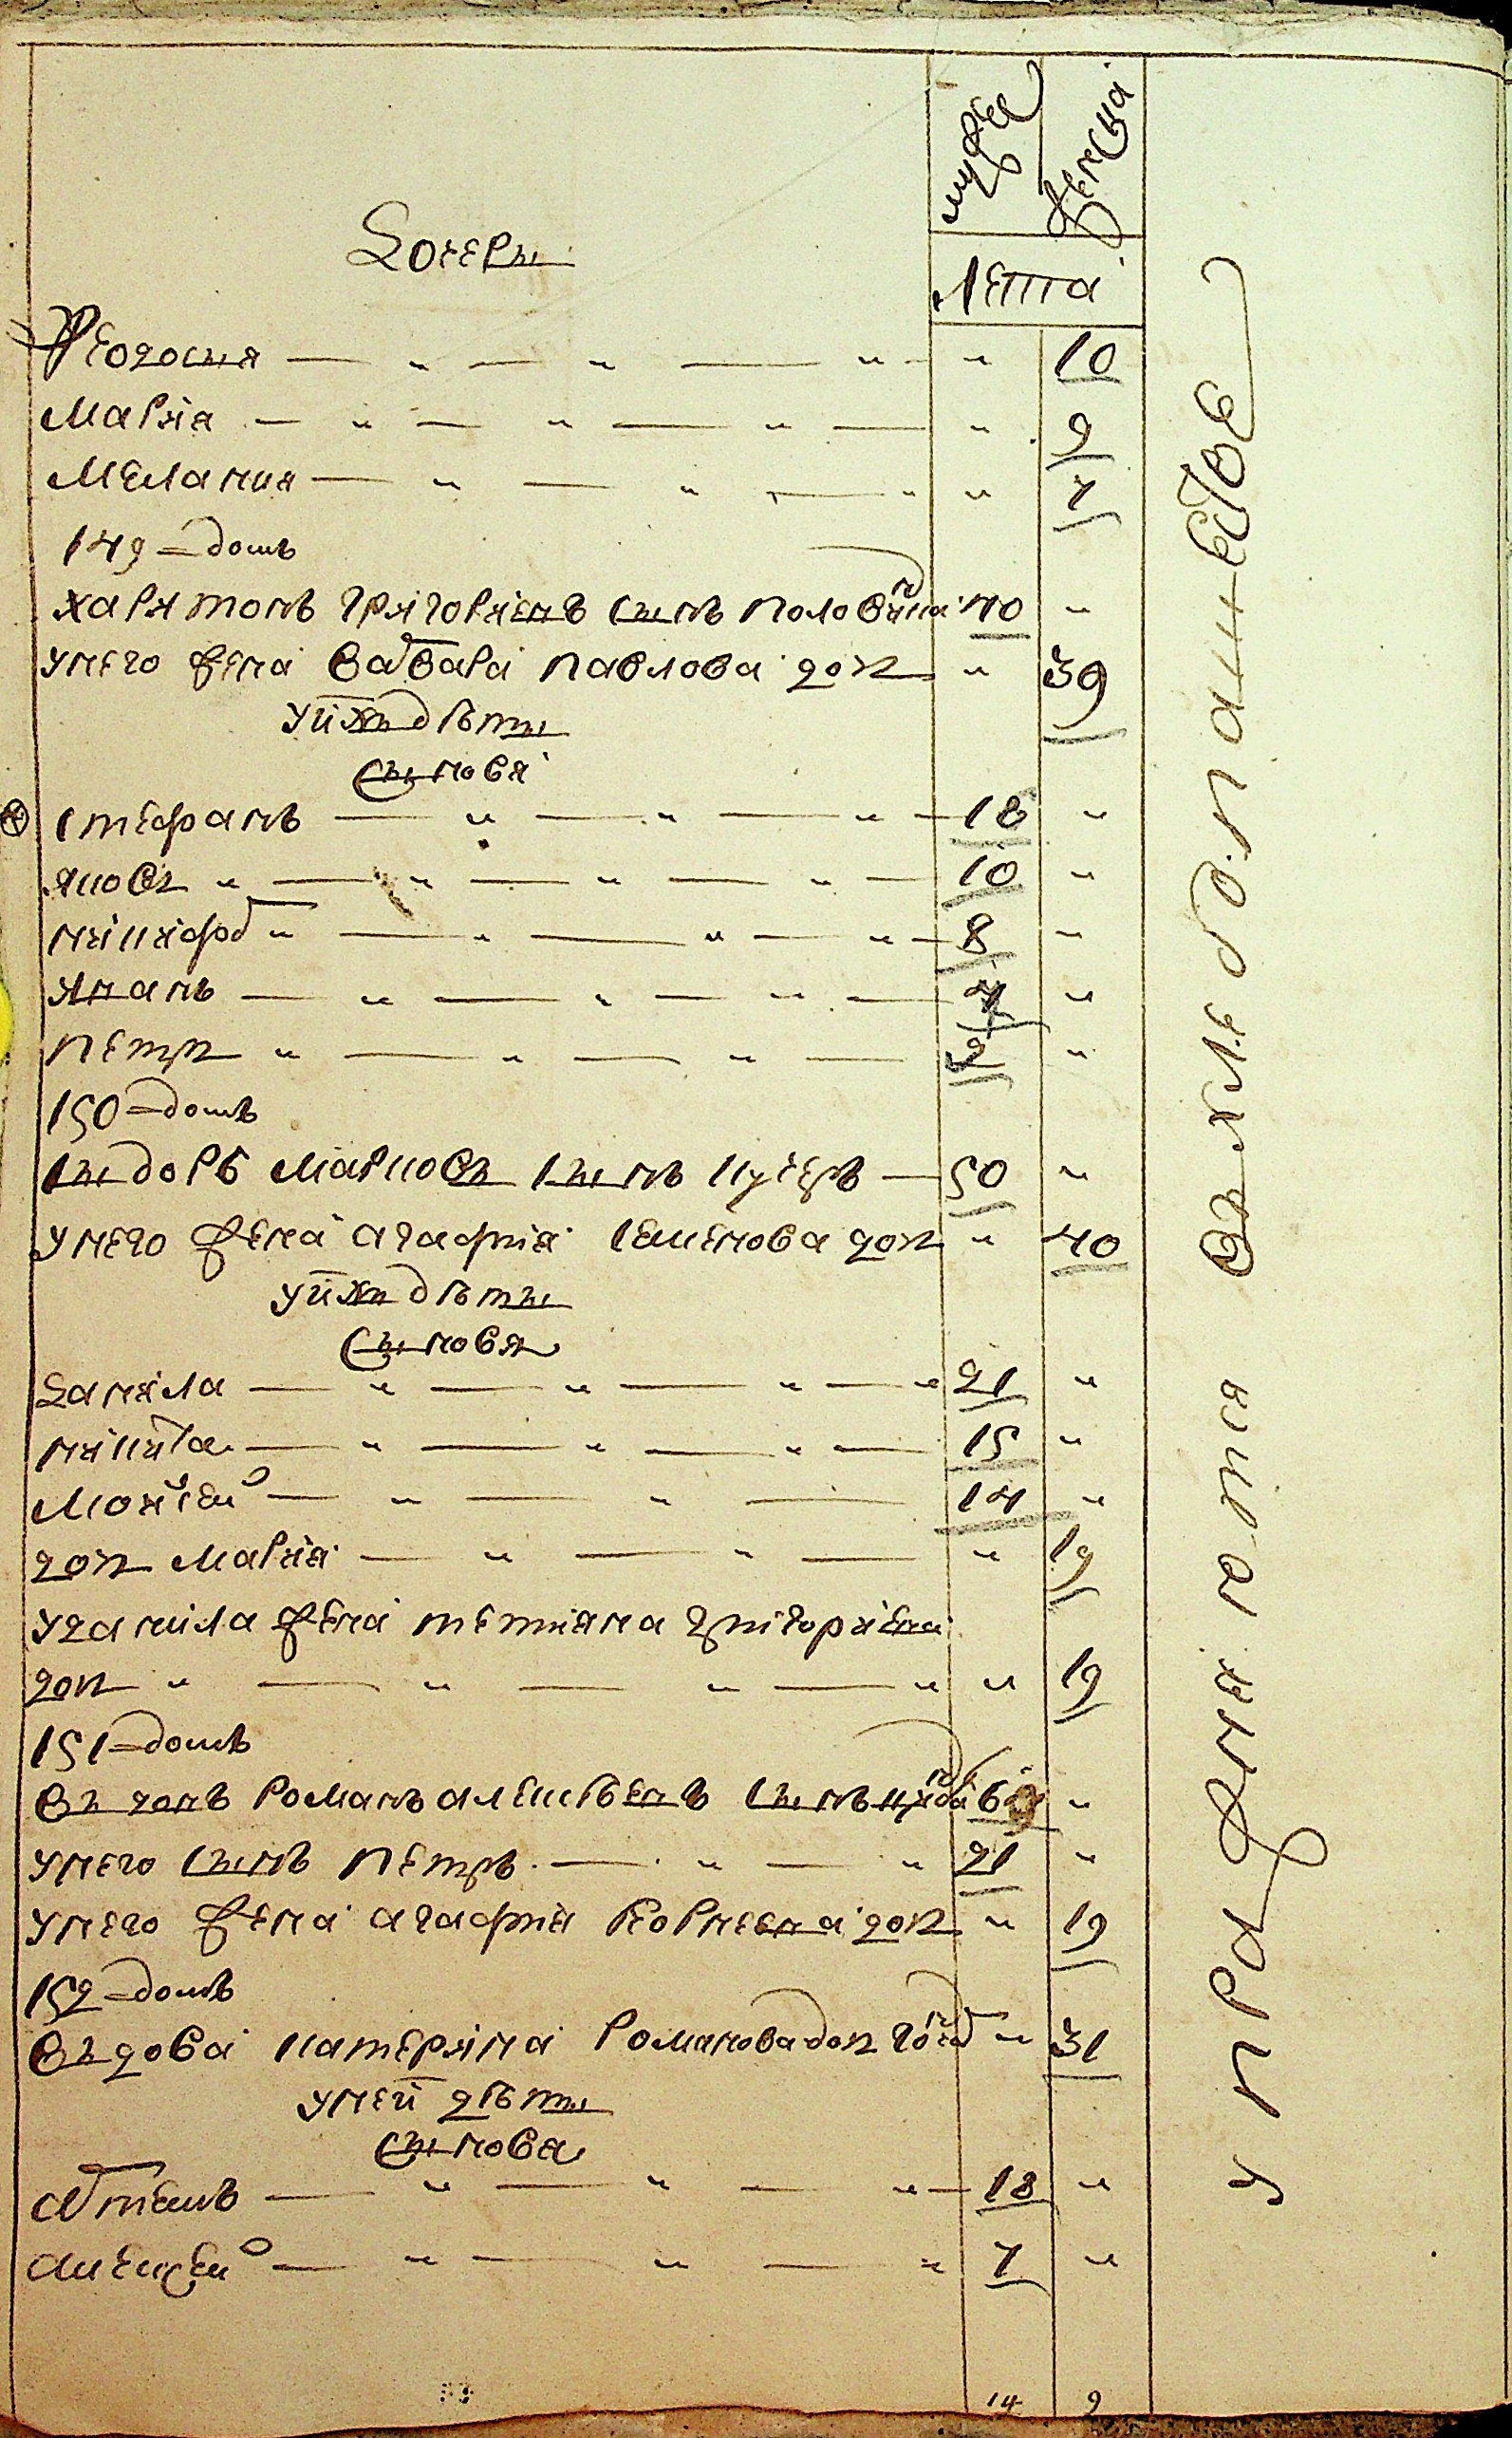 мужеск
женска
лета
Дочеры
Феодосыя " " " " 10
Мария " " " " 9
Мелания " " " " 7
149=домъ
харитонъ григориевъ сынъ половинка 40 "
унего жена варвара павлова доч " 39
уних дѣты
сыновя
стефанъ " " " 18 "
яковъ " " " " 10 "
никифор " " " " 8 "
иванъ " " " 4 "
петръ " " " 2 "
150=домъ
сыдоръ марковъ сынъ кучеръ 50 "
унего жена агафия семенова доч " 40
уних дѣты
сыновя
данила " " " " 21 "
никита " " " 15 "
Моисей " " 14 "
доч мария " " " 19
уданила жена тетияна григориева
доч " " " " " 19
151=домъ
вдовъ романъ алексѣевъ сынъ 69 "
унего сынъ петръ " " 21 "
унего жена агафия корнеева доч " 19
152=домъ
вдова катерина романова доч " 31
уней дѣты
сыновя
артемъ " " " 18 "
алексей " " " 7 "
14 9